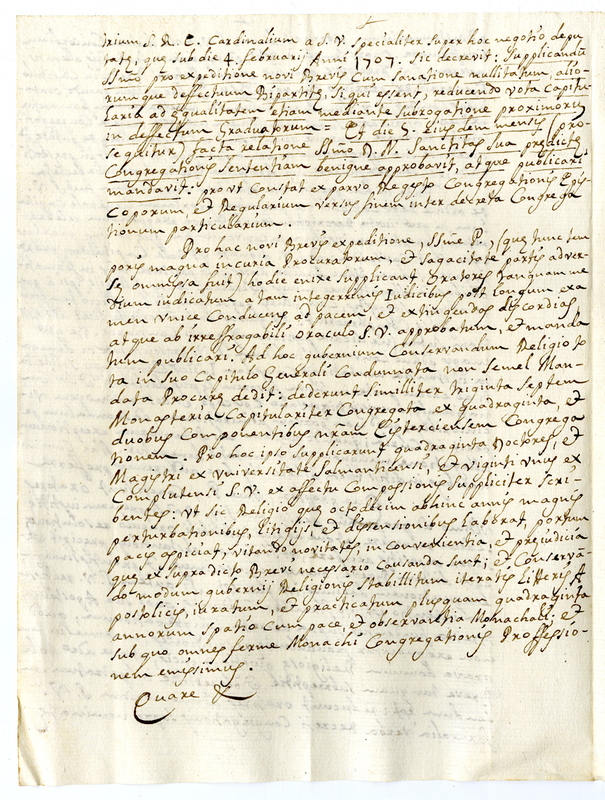 trium S. R. E. Cardinalium a S. V. specialiter super hoc negotio depu
tatę, quę sub die 4. februarij Anni 1707. sic decrevit: supplicandũ
SSmo pro expeditione novi Brevis cum sanatione nullitatum, alio-
rumque deffectuum Bipartitę, si qui essent, reducendo vota Capitu
laria ad ęqualitatem etiam mediante subrogatione proximoris
in deffectum Graduatorum = Et die 5. eiusdem mensis (pro-
sequitur) facta relatione SSmo D. N. Sanctitas sua predictę
Congregationis sententiam benigne approbavit, atque publicari
mandavit: prout Constat ex parvo Regesto Congregationis Epis-
coporum, et Regularium versus finem inter decreta Congrega
tionum particularium.
Pro hac novi Brevis expeditione, SSme P., (quę tunc tem
poris magna in curia Procuratorum, et sagacitate partis adver-
sę omissa fuit) hodie enixe supplicant Oratores tanquam me
dium indicatum a tam integerrimis Iudicibus post longum exa
men unice Conducens ad pacem, et extinguendas discordias,
atque ab irreffragabili oraculo S. V. approbatum, et manda
tum publicari. Ad hoc gubernium Conservandum Religio to
ta in suo Capitulo Generali Coadunnata non semel Man-
data Procurę dedit: dederunt similliter triginta septem
Monasteria Capitulariter Congregata ex quadraginta, et
duobus Componentibus nr̃am Cisterciensem Congrega
tionem. Pro hoc ipso supplicarunt quadraginta Doctores, et
Magistri ex Universitate Salmanticensi, et viginti unus ex
Complutensi S. V. ex affectu Compassionis suppliciter scri-
bentes: ut sic Religio quę octodecim abhinc annis magnis
perturbationibus, litigijs, et dissensionibus laborat, portum
pacis aspiciat, vitando novitates, inconvenientia, et prejudicia
quę ex supradicto Brevi necessario Causanda sunt; et Conservã-
do modum gubernij Religionis stabillitum iteratis Litteris A
postolicis, iuratum, et practicatum plusquam quadraginta
annorum spatio cum pace, et observantia Monachali, et
sub quo omnes ferme Monachi Congregationis Proffessio-
nem emisimus.
Quare &